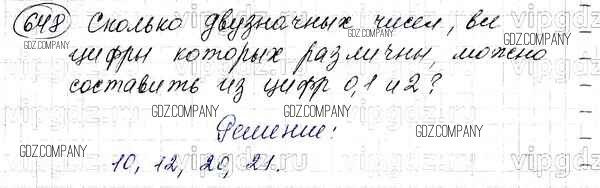 648 Сколько двузначных чисел, все
цифры которых различны, можно
составить из цифр 0,1 и 2?
Решение:
10, 12, 20, 21.
GDZ.COMPANY
GDZ.COMPANY
GDZ.COMPANY
GDZ.COMPANY
GDZ.COMPANY
GDZ.COMPANY
GDZ.COMPANY
GDZ.COMPANY
vipgdz.com